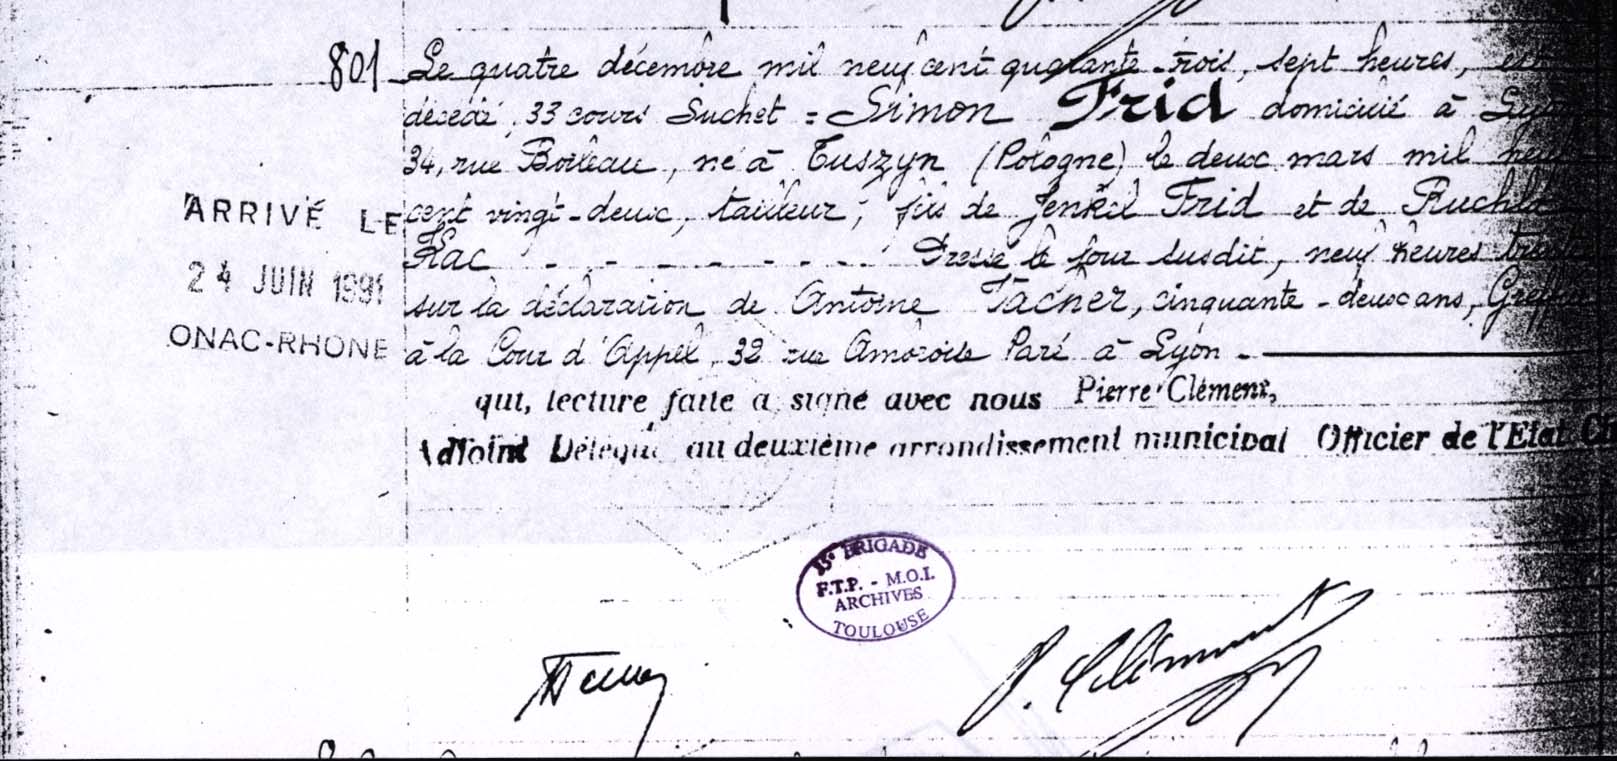 801 Le quatre décembre mil neuf cent quarante-trois, sept heures, est
décédé, 33 cours Suchet = Simon Frid domicilié à Lyon
34, rue Boileau, né à Tuszyn (Pologne) le deux mars mil neuf
cent vingt-deux, tailleur, fils de Jenkel Frid et de Ruchla
Rac - - - - - - - - - Dressé le jour susdit, neuf heures trente
sur la déclaration de Antoine cinquante-deux ans, Greffier
à la Cour d'Appel, 32 rue Ambroise Paré à Lyon -
qui, lecture faite a signé avec nous Pierre Clément,
Adjoint Délégué au deuxième arrondissement municipal Officier de l'Etat Ci
ARRIVÉ LE
24 JUIN 1991
ONAC-RHONE
35e BRIGADE
F.T.P. - M.O.I.
ARCHIVES
TOULOUSE
P. Clément